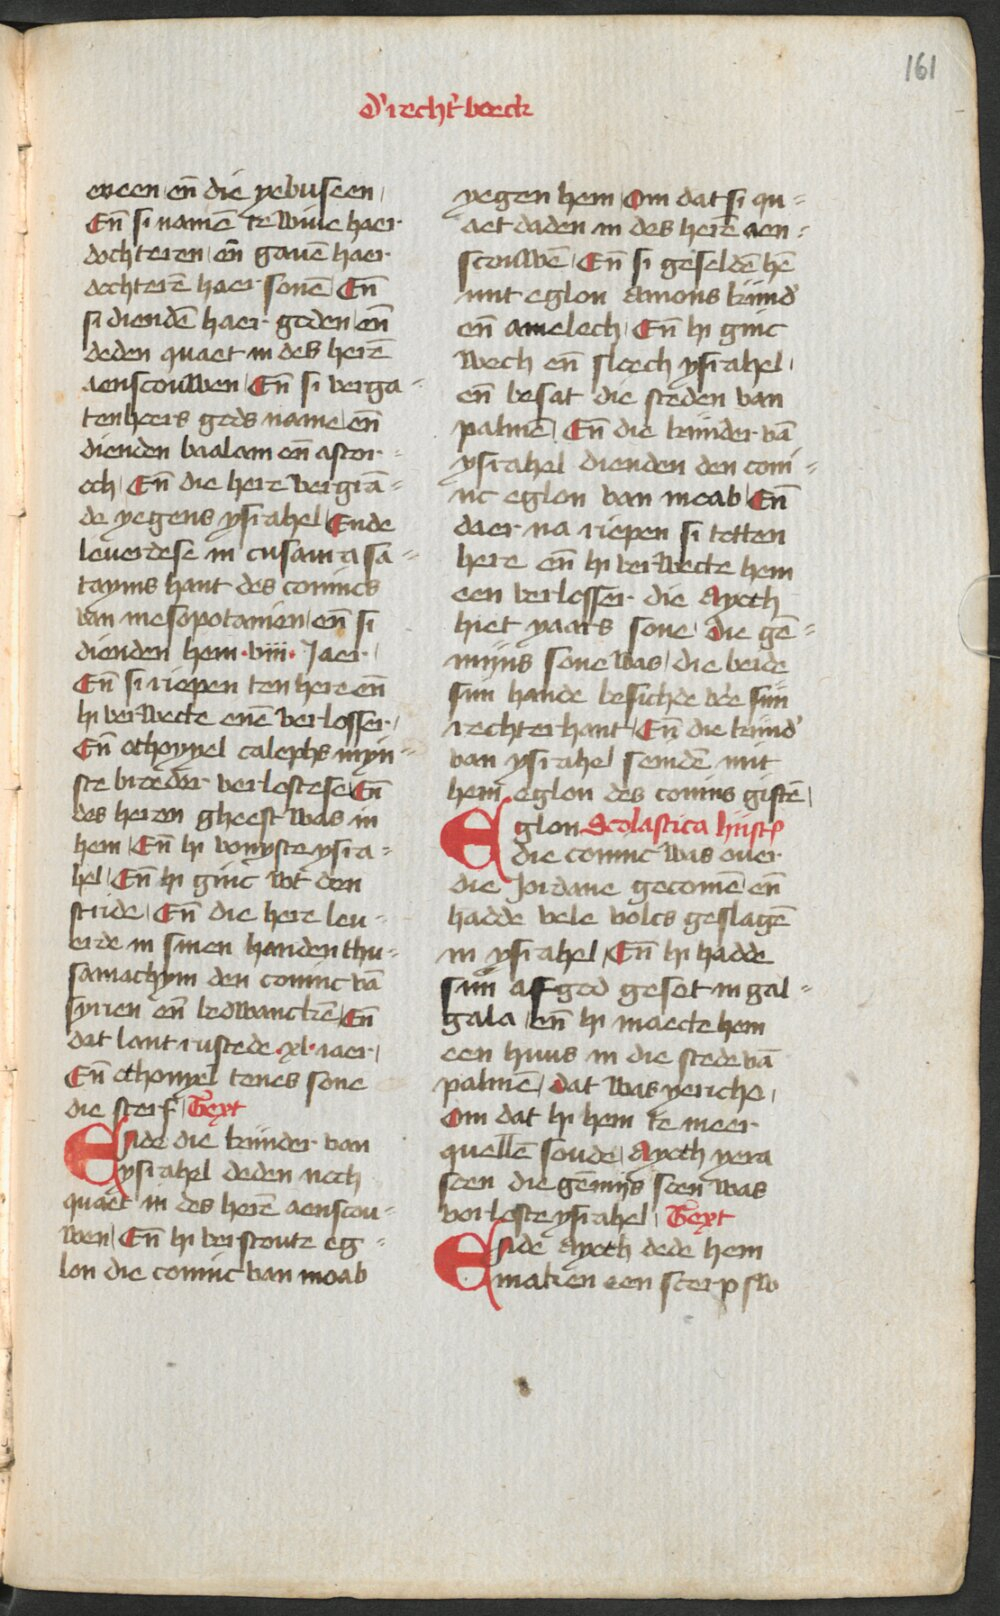 161
d'recht'boeck
eveen en̄ die yebuseen
En̄ si namē te wiue haer
dochteren en̄ gauē haer
dochterē haer sonē En̄
si diendē haer goden en̄
deden quaet in des herē
aenscouwen En̄ si verga-
ten heers gods name en̄
dienden baalam en̄ astor-
och En̄ die here vergrā-
de yegens ysrahel Ende
leuerdese in cusanrasa-
tayms hant des conincs
van mesopotamien en̄ si
dienden hem viii Jaer
En̄ si riepen ten here en̄
hi verwecte enē verlosser
En̄ othonyel calephs myn-
ste brueder verlostese En̄
des heren gheest was in
hem En̄ hi vonyste ysra-
hel En̄ hi ginc wt den
stride En̄ die here leu-
erde in sinen handen thu-
samachym den coninc vā
syrien en̄ bedwanckē En̄
dat lant rustede xl iaer
En̄ othonyel cenes sone
die sterf Text
Ende die kinder van
ysrahel deden noch
quaet in des herē aenscou-
wen En̄ hi verstoute eg-
lon die coninc van moab
yegen hem Om dat si qu-
aet daden in des herē aen-
scouwē En̄ si geseldē hē
mit eglon amons kind'
en̄ amelech En̄ hi ginc
wech en̄ sloech ysrahel
en̄ besat die steden van
palmē En̄ die kinder vā
ysrahel dienden den coni-
nc eglon van moab En̄
daer na riepen si totten
here en̄ hi verwecte hem
een verlosser die Ayoth
hiet yaars sone die gē-
mijns sone was die beide
sijn hande besichde v'e sijn
rechterhant En̄ die kind'
van ysrahel seindē mit
hem eglon des conins giftē
Eglon Scolastica hist'
die coninc was ouer
die Jordane gecomē en̄
hadde vele volcs geslagē
in ysrahel En̄ hi hadde
sijn afgod geset in gal-
gala en̄ hi maecte hem
een huus in die stede vā
palmē dat was yericho
Om dat hi hem te meer
quellē soude Ayoth yera
soen die gēmijs soen was
verloste ysrahel Text
Ende Ayoth dede hem
maken een scerp sw